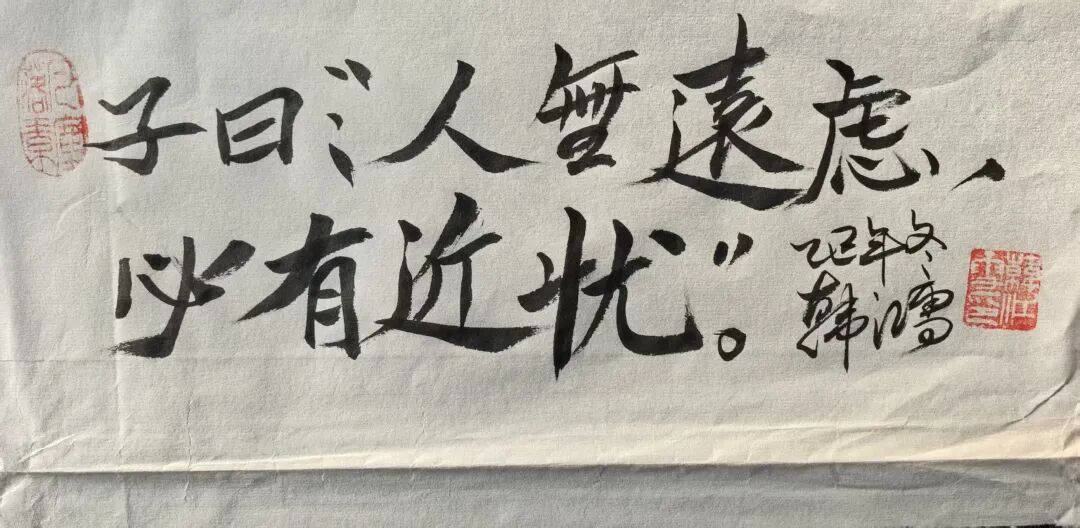 子曰：“人無遠虑，
必有近忧”。
乙巳年冬
韩